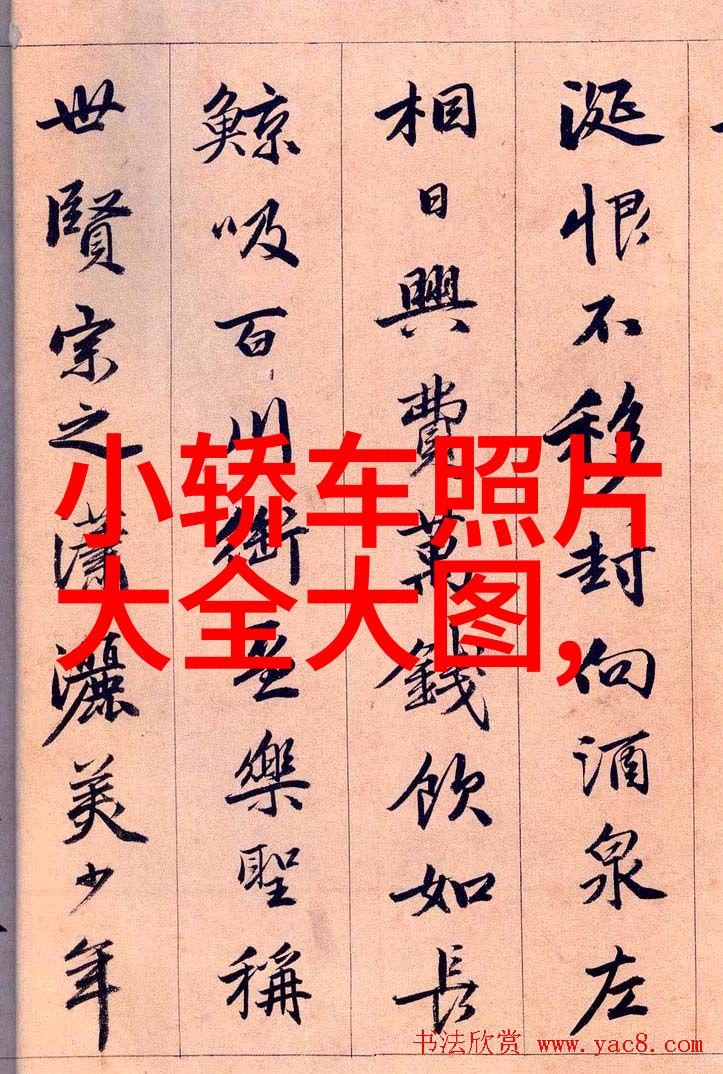 涎恨不移封向酒泉左
相日興費萬錢飲如長
鯨吸百川銜盃樂聖稱
世賢宗之瀟灑美少年
小轿车照片
大全大图,
书法欣赏 www.yac8.com